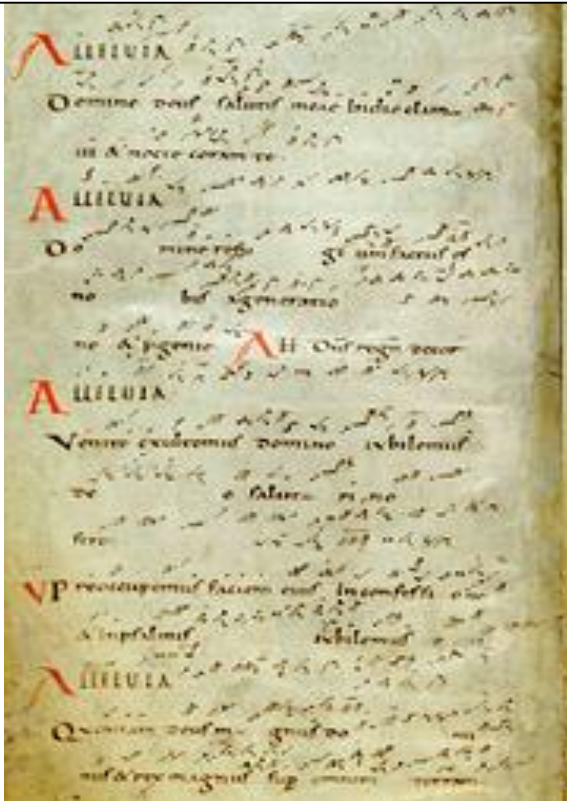 ALLELUIA
Domine deus salutis meae in die clamavi
et nocte coram te
ALLELUIA
Do mine refu gi um factus es
no bis a generatio
ne & pgenie All Dns regn decor
ALLELUIA
Venite exultemus domino iubilemus
de o salutari no
stro
VP reoccupemus faciem eius in confessi one
& in psalmis iubilemus
ALLELUIA
Quoniam deus magnus do mi
nus & rex magnus sup omnem terram